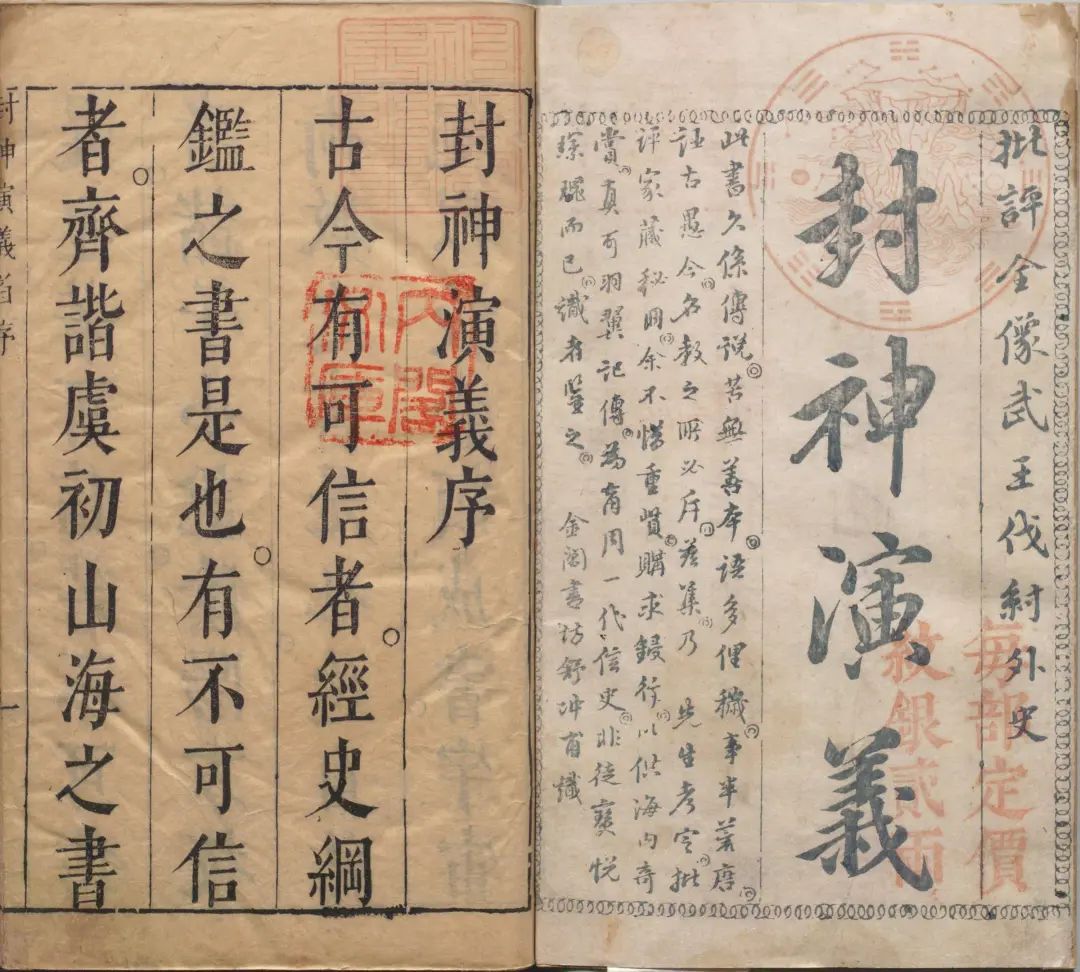 批評全像武王伐紂外史
封神演義
每部定價
紋銀貳兩
此書久係傳說苦無善本語多俚穢事半荒唐
古愚今名教之所必斥茲集乃 先生考定批
評家藏秘冊余不惜重貲購求鋟行以供海內奇
賞真可羽翼記傳為商周一代信史非徒寶悅
琛瓌而已識者鑒之 金閶書坊舒冲甫識
封神演義序
古今有可信者經史綱
鑑之書是也有不可信
者齊諧虞初山海之書
內閣文庫
封神演義 序 一